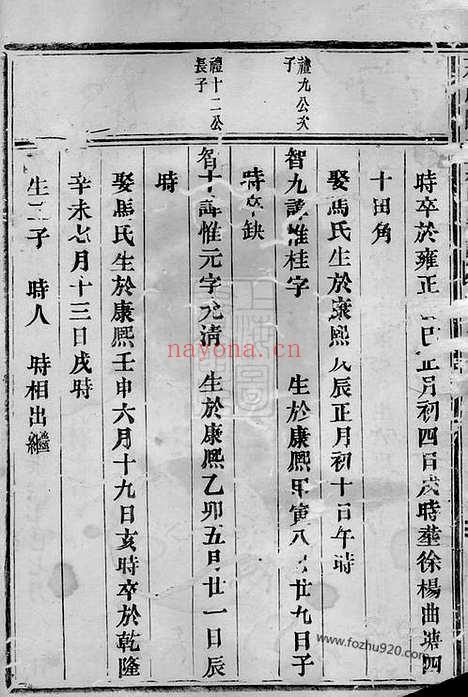 禮九公次
子
禮十二公
長子
時卒於雍正 巳正月初四日戌時葬徐楊曲塘四
十田角
娶馬氏生於康熙戊辰正月初十日午時
智九諱惟桂字 生於康熙甲寅八月廿九日子
時卒缺
智十諱惟元字元清 生於康熙乙卯五月廿一日辰
時
娶馬氏生於康熙壬申六月十九日亥時卒於乾隆
辛未七月十三日戌時
生二子 時人 時相出繼
nayona.cn
www.fozhu920.com